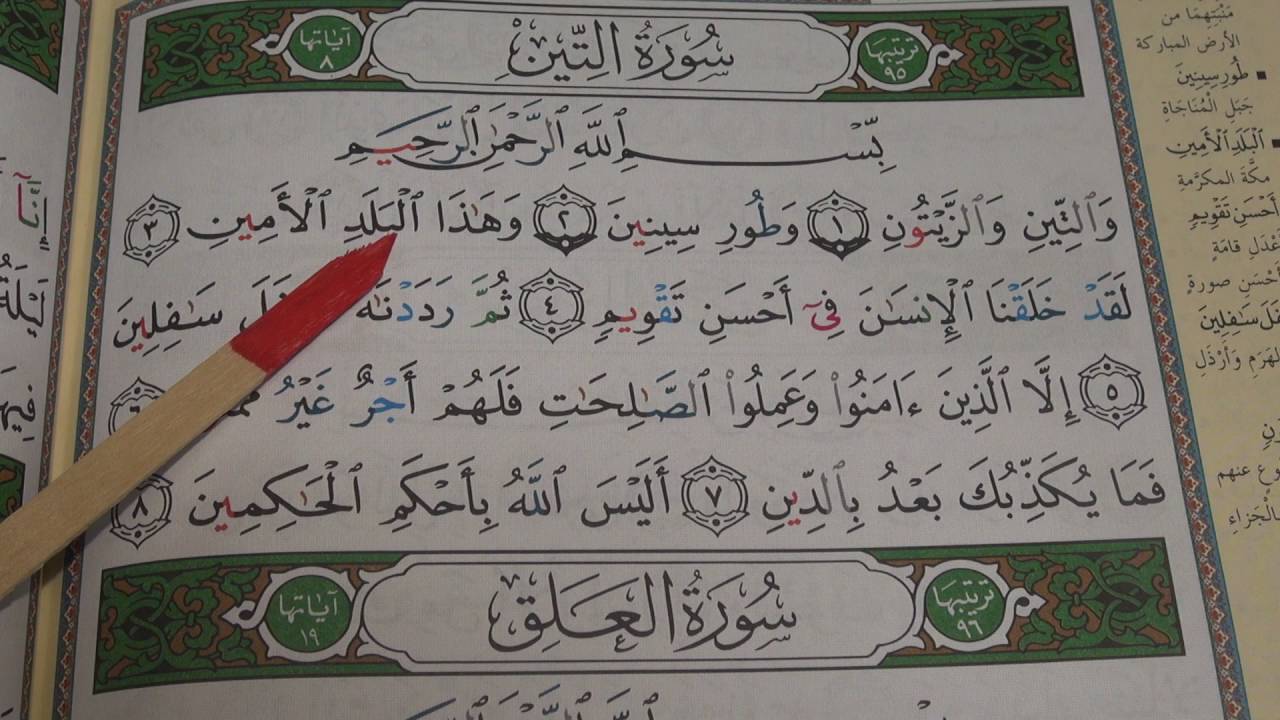 ترتيبها ٩٥ سُورَةُ التِّينِ آياتها ٨
بِّسْمِ ٱللَّهِ ٱلرَّحْمَٰنِ ٱلرَّحِيمِ
وَٱلتِّينِ وَٱلزَّيْتُونِ ١ وَطُورِ سِينِينَ ٢ وَهَٰذَا ٱلْبَلَدِ ٱلْأَمِينِ ٣
لَقَدْ خَلَقْنَا ٱلْإِنسَٰنَ فِىٓ أَحْسَنِ تَقْوِيمٍ ٤ ثُمَّ رَدَدْنَٰهُ سَٰفِلِينَ
٥ إِلَّا ٱلَّذِينَ ءَامَنُوا۟ وَعَمِلُوا۟ ٱلصَّٰلِحَٰتِ فَلَهُمْ أَجْرٌ غَيْرُ
فَمَا يُكَذِّبُكَ بَعْدُ بِٱلدِّينِ ٧ أَلَيْسَ ٱللَّهُ بِأَحْكَمِ ٱلْحَٰكِمِينَ ٨
ترتيبها ٩٦ سُورَةُ العَلَقِ آياتها ١٩
مَنْبَتِهِمَا من
الأرض المباركة
طُورِ سِينِينَ
جَبَلِ الْمُنَاجَاةِ
ٱلْبَلَدِ ٱلْأَمِينِ
مكَّةَ المكرَّمةِ
أَحْسَنِ تَقْوِيمٍ
قامَةٍ
صورةٍ
سَٰفِلِينَ
وَأَرْذَلِ
عنهم
إِنَّا
لَيْلَةُ